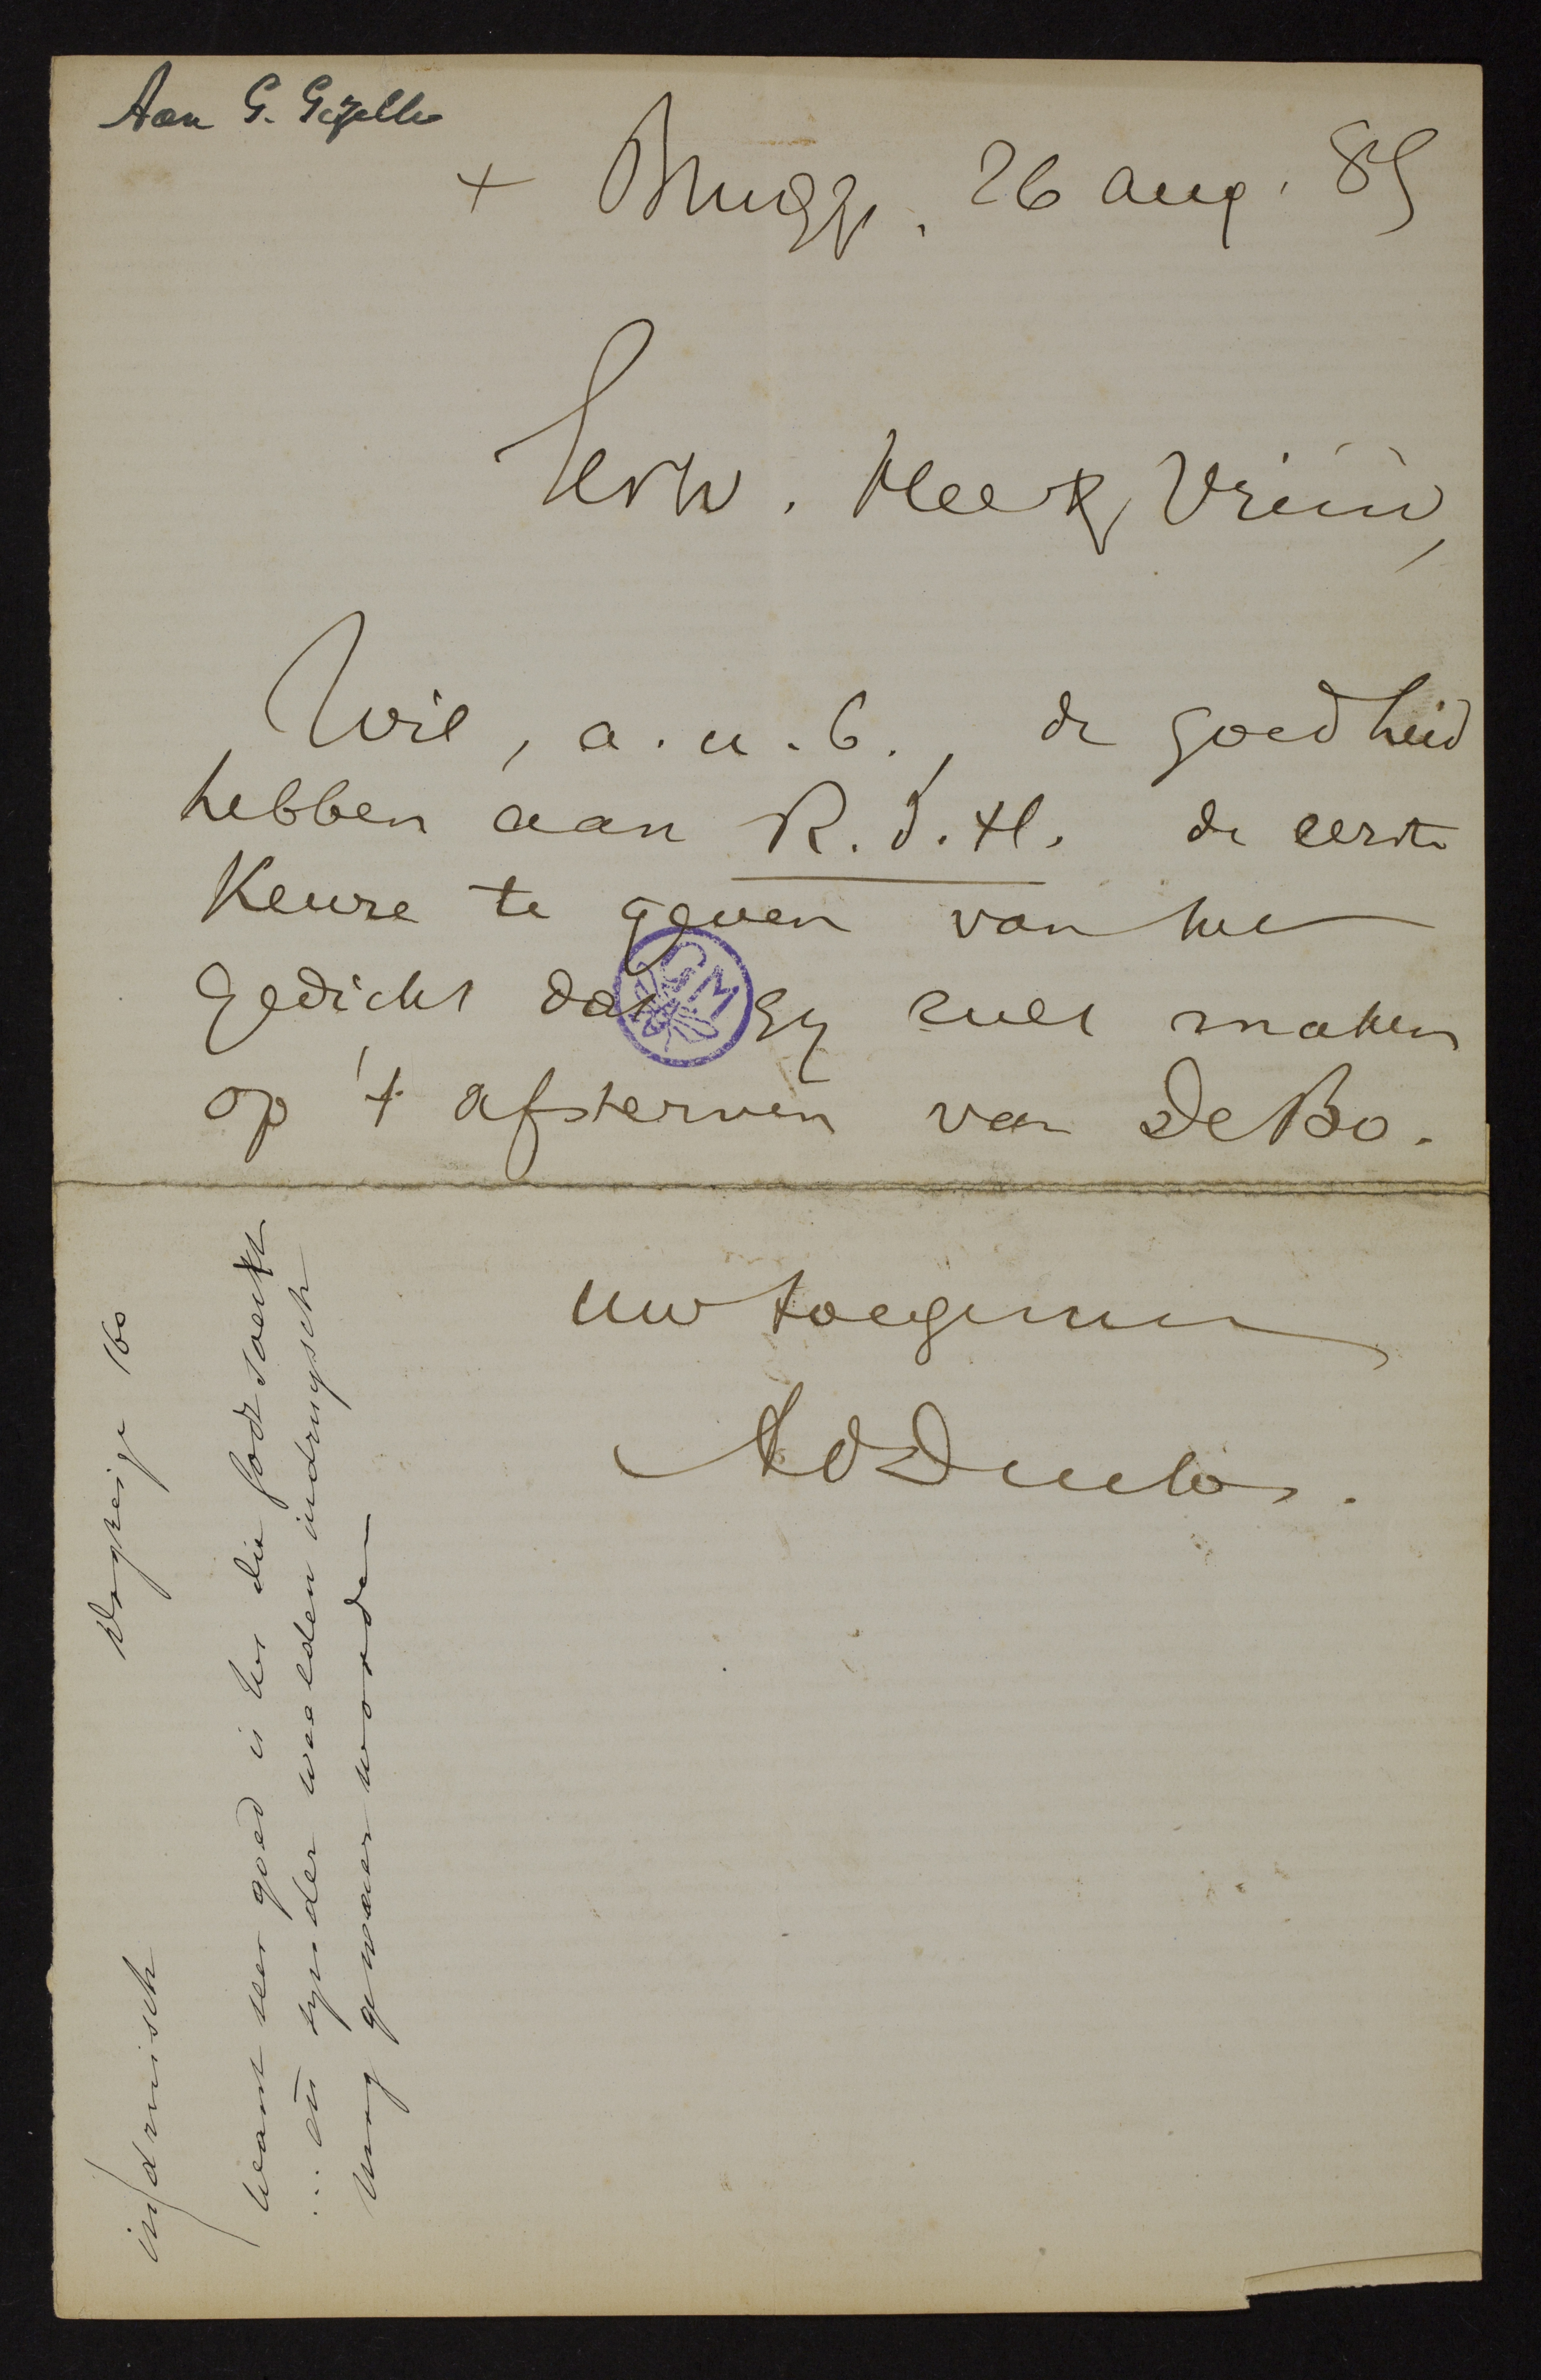 Aan G. Gezelle
+ Brugge, 26 aug. 85
Eerw. Heer & Vriend,
Wil, a.u.b., de goedheid
hebben aan R.d.H. de eerste
Keuze te geven van het
gedicht dat Gy zult maken
op 't afsterven van De Bo.
uw toegenen
Ad Duclos.
160
indruisch
want zeer goed is het die
... dit zyn der welden indruysch
mag gewaer worden
GM